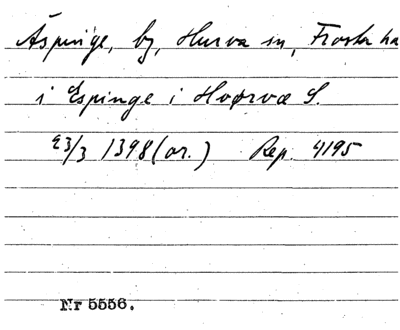 Äspinge, by, Hurva sn, Frosta hd
i Espinge i Hoørvæ S.
23/3 1398 (or.) Rep. 4195
Nr 5556.